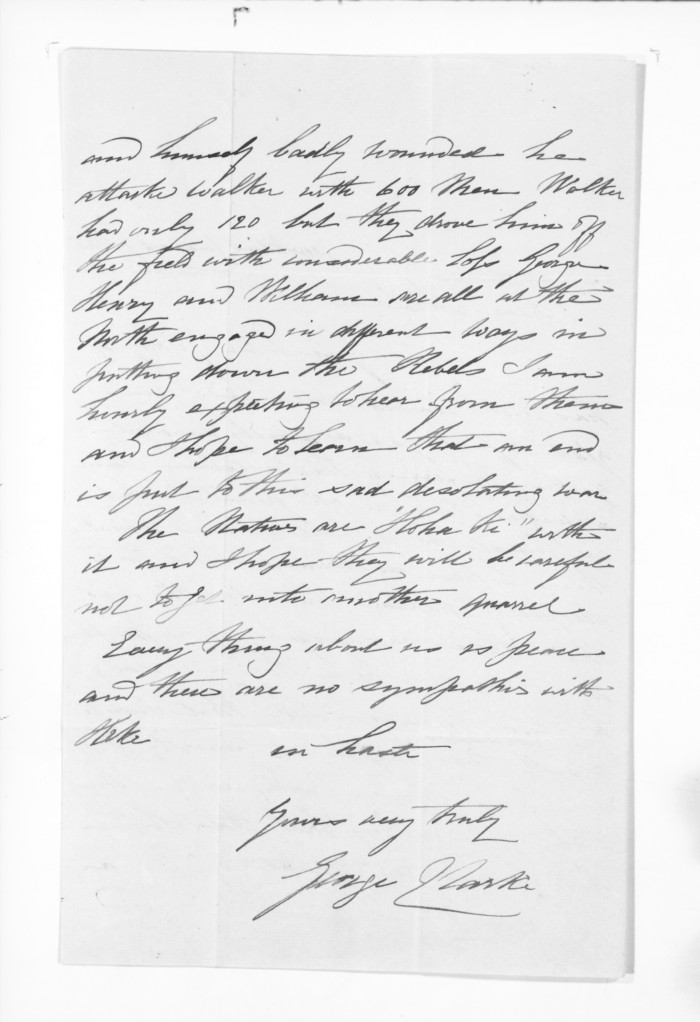 and himself badly wounded he
attackt Walker with 600 Men Walker
had only 120 but they drove him off
the field with considerable loss George
Henry and William are all at the
North engaged in different ways in
putting down the Rebels I am
hourly expecting to hear from them
and I hope to learn that an end
is put to this sad desolating war
The Natives are "Hoha Ki" with
it and I hope they will be careful
not to get into another quarrel
Every thing about us is peace
and there are no sympathies with
Heke
in haste
Yours very truly
George Clarke